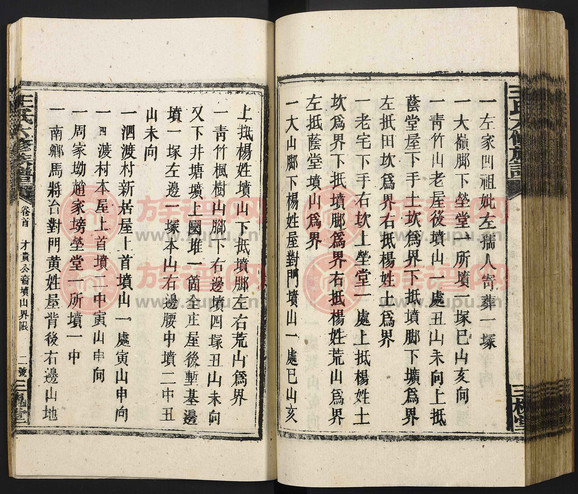 王氏六修族譜
三槐堂
一左家凹祖妣左孺人寄葬一塚
一大嶺腳下塋堂一所墳一塚巳山亥向
一青竹山老屋後墳山一處丑山未向上抵
蔭堂屋下手土坎爲界下抵墳腳下壙爲界
左抵田坎爲界右抵楊姓土爲界
一老宅下手右坎上塋堂一處上抵楊姓土
坎爲界下抵墳腳爲界右抵楊姓荒山爲界
左抵蔭堂墳山爲界
一大山腳下楊姓屋對門墳山一處巳山亥
上抵楊姓墳山下抵墳腳左右荒山爲界
一青竹楓樹山腳下右邊墳四塚丑山未向
又下井塘墳上圍堆一箇全庄屋後塹基邊
墳一塚左邊一塚本山右邊腰中墳二中丑
山未向
一泗渡村新居屋上首墳山一處寅山申向
一泗渡村本屋上首墳一中寅山申向
一周家坳趙家塝塋堂一所墳一中
一南鄉馬將台對門黃姓屋背後右邊山地
王氏六修族譜
卷首
墳山界限
二號
三槐堂
族譜网
www.zupu.cn